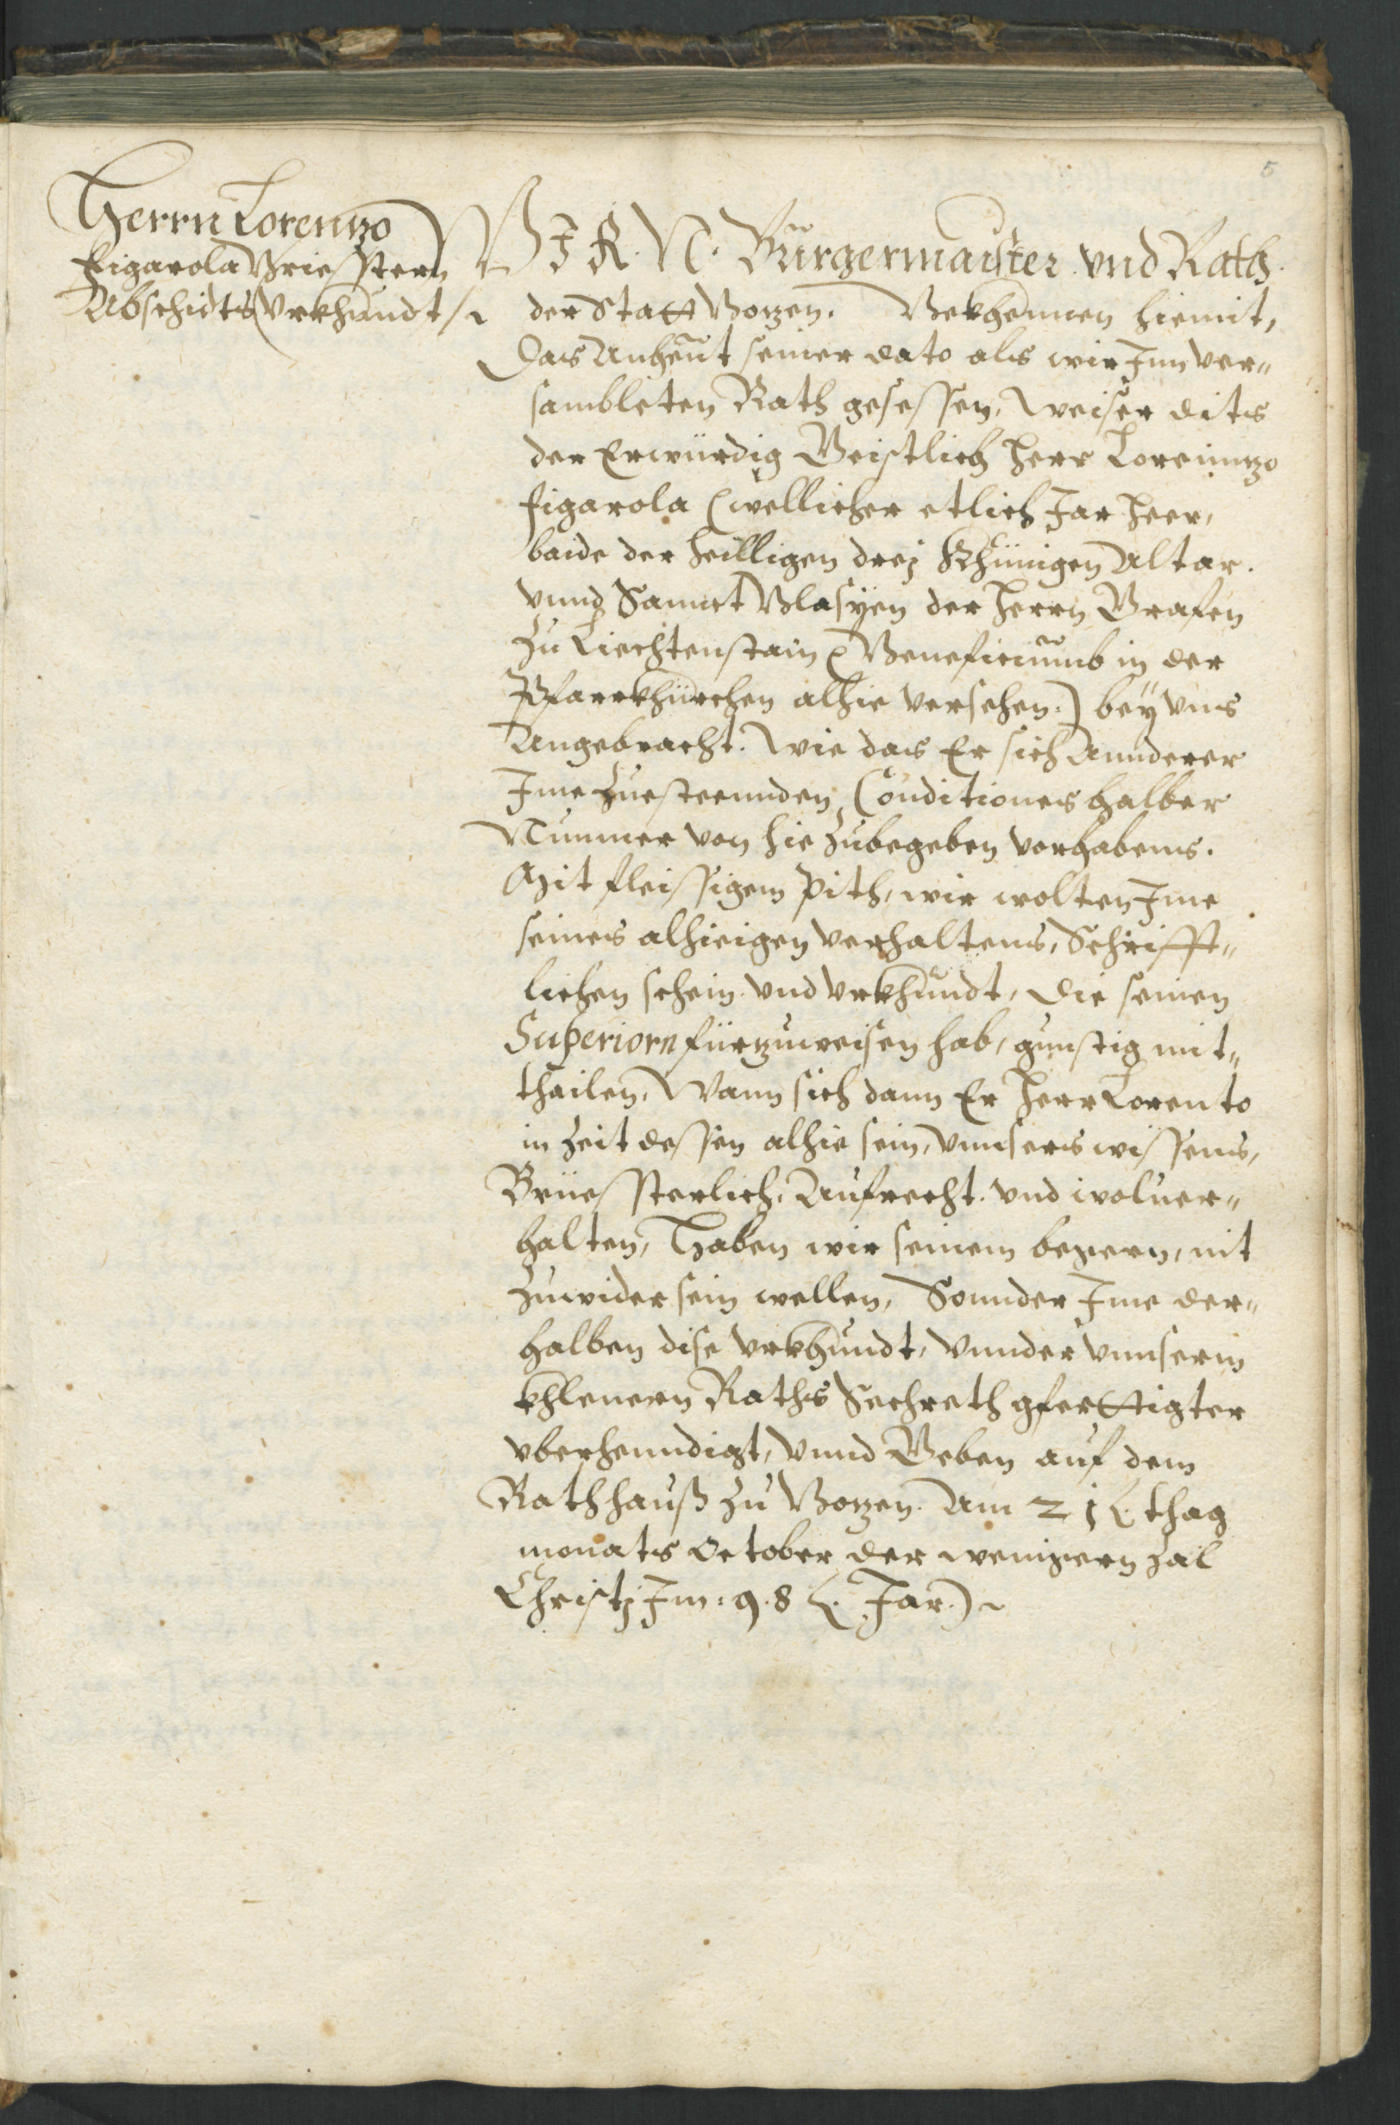 5
Herrn Lorenzo
Figarola Briesstern
Abschidts Vrkhundt /
WIR. N. Burgermaister vnd Rath
der Statt Bozen. Bekhennen hiemit,
Das Anheut seiner dato als wir Im ver„
sambleten Rath gesessen, weiser dits
der Erwürdig Geistlich Herr Lorenntzo
figarola (wellicher etlich Jar heer,
baide der heilligen drej Khünigen Altar.
vnnd Sannct Blasÿen der Herrn Grafen
zu Liechtenstain Beneficiumb in der
Pfarrkhürchen alhie versehen.) beÿ vns
Angebracht. Wie das Er sich Annderer
Ime zuesteennden Conditiones halber
Nunmer von hie zubegeben vorhabens.
Mit fleissigem Pith, wir wolten Ime
seines alhieigen verhaltens, Schrifft„
lichen schein vnd vrkhundt, die seinen
Superiorn fürzuweisen hab, gunstig mit„
thailen, Wann sich dann Er Herr Lorento
in zeit dessen alhie sein, vnnsers wissens,
Brüessterlich, Aufrecht. vnd woluer„
halten, Haben wir seinem begern, nit
zuwider sein wellen, Sonnder Ime der„
halben dise vrkhundt, vnnder vnnserm
khlenern Raths Sechreth gferttigter
vberhenndigt, vnnd Geben auf dem
Rathhauß zu Bozen. Am 21 thag
monats October der wenigern zal
Christj Im: 9.8 Jar.)